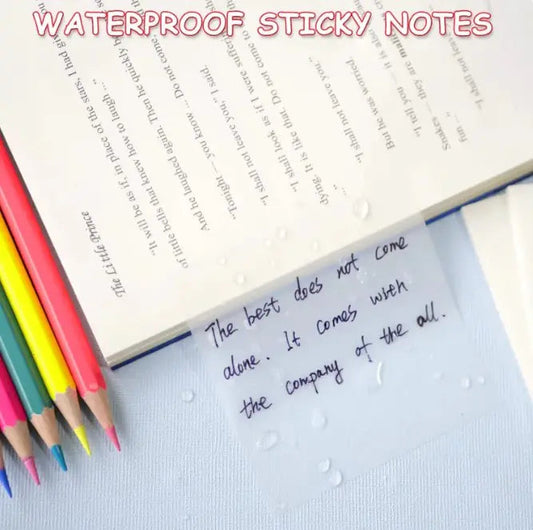 WATERPROOF STICKY NOTES
The Little Prince
"It will be as if, in place of the stars, I had
of little bells that knew how to laugh ..."
And he laughed again. Then he quickly
"Tonight — you know ... Do not come
"I shall not leave you," I said.
"I shall look as if I were
dying. It is like that. Do not come to
..."
"I shall not leave you."
But he was worried.
"I tell you — it is also
Snakes — they are
fun ..."
"I shall not leave
The best does not come
alone. It comes with
the company of the all.